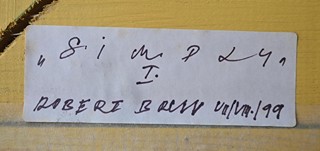 „SIMPLY"
I.
ROBERT BRUN VII/VIII./99